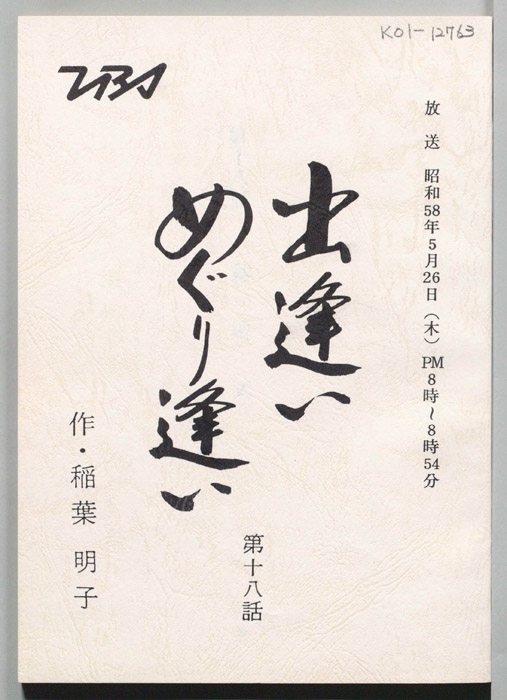 K01-12763
TBS
放送 昭和58年5月26日（木）PM8時〜8時54分
出逢い
めぐり逢い
第十八話
作・稲葉明子